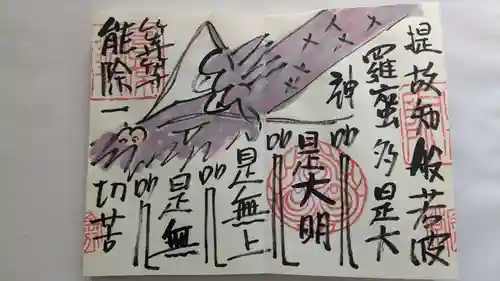 提故知般若波
羅蜜多是大
神呪
是大明呪
是無上呪
是無
等等呪
能除一切苦